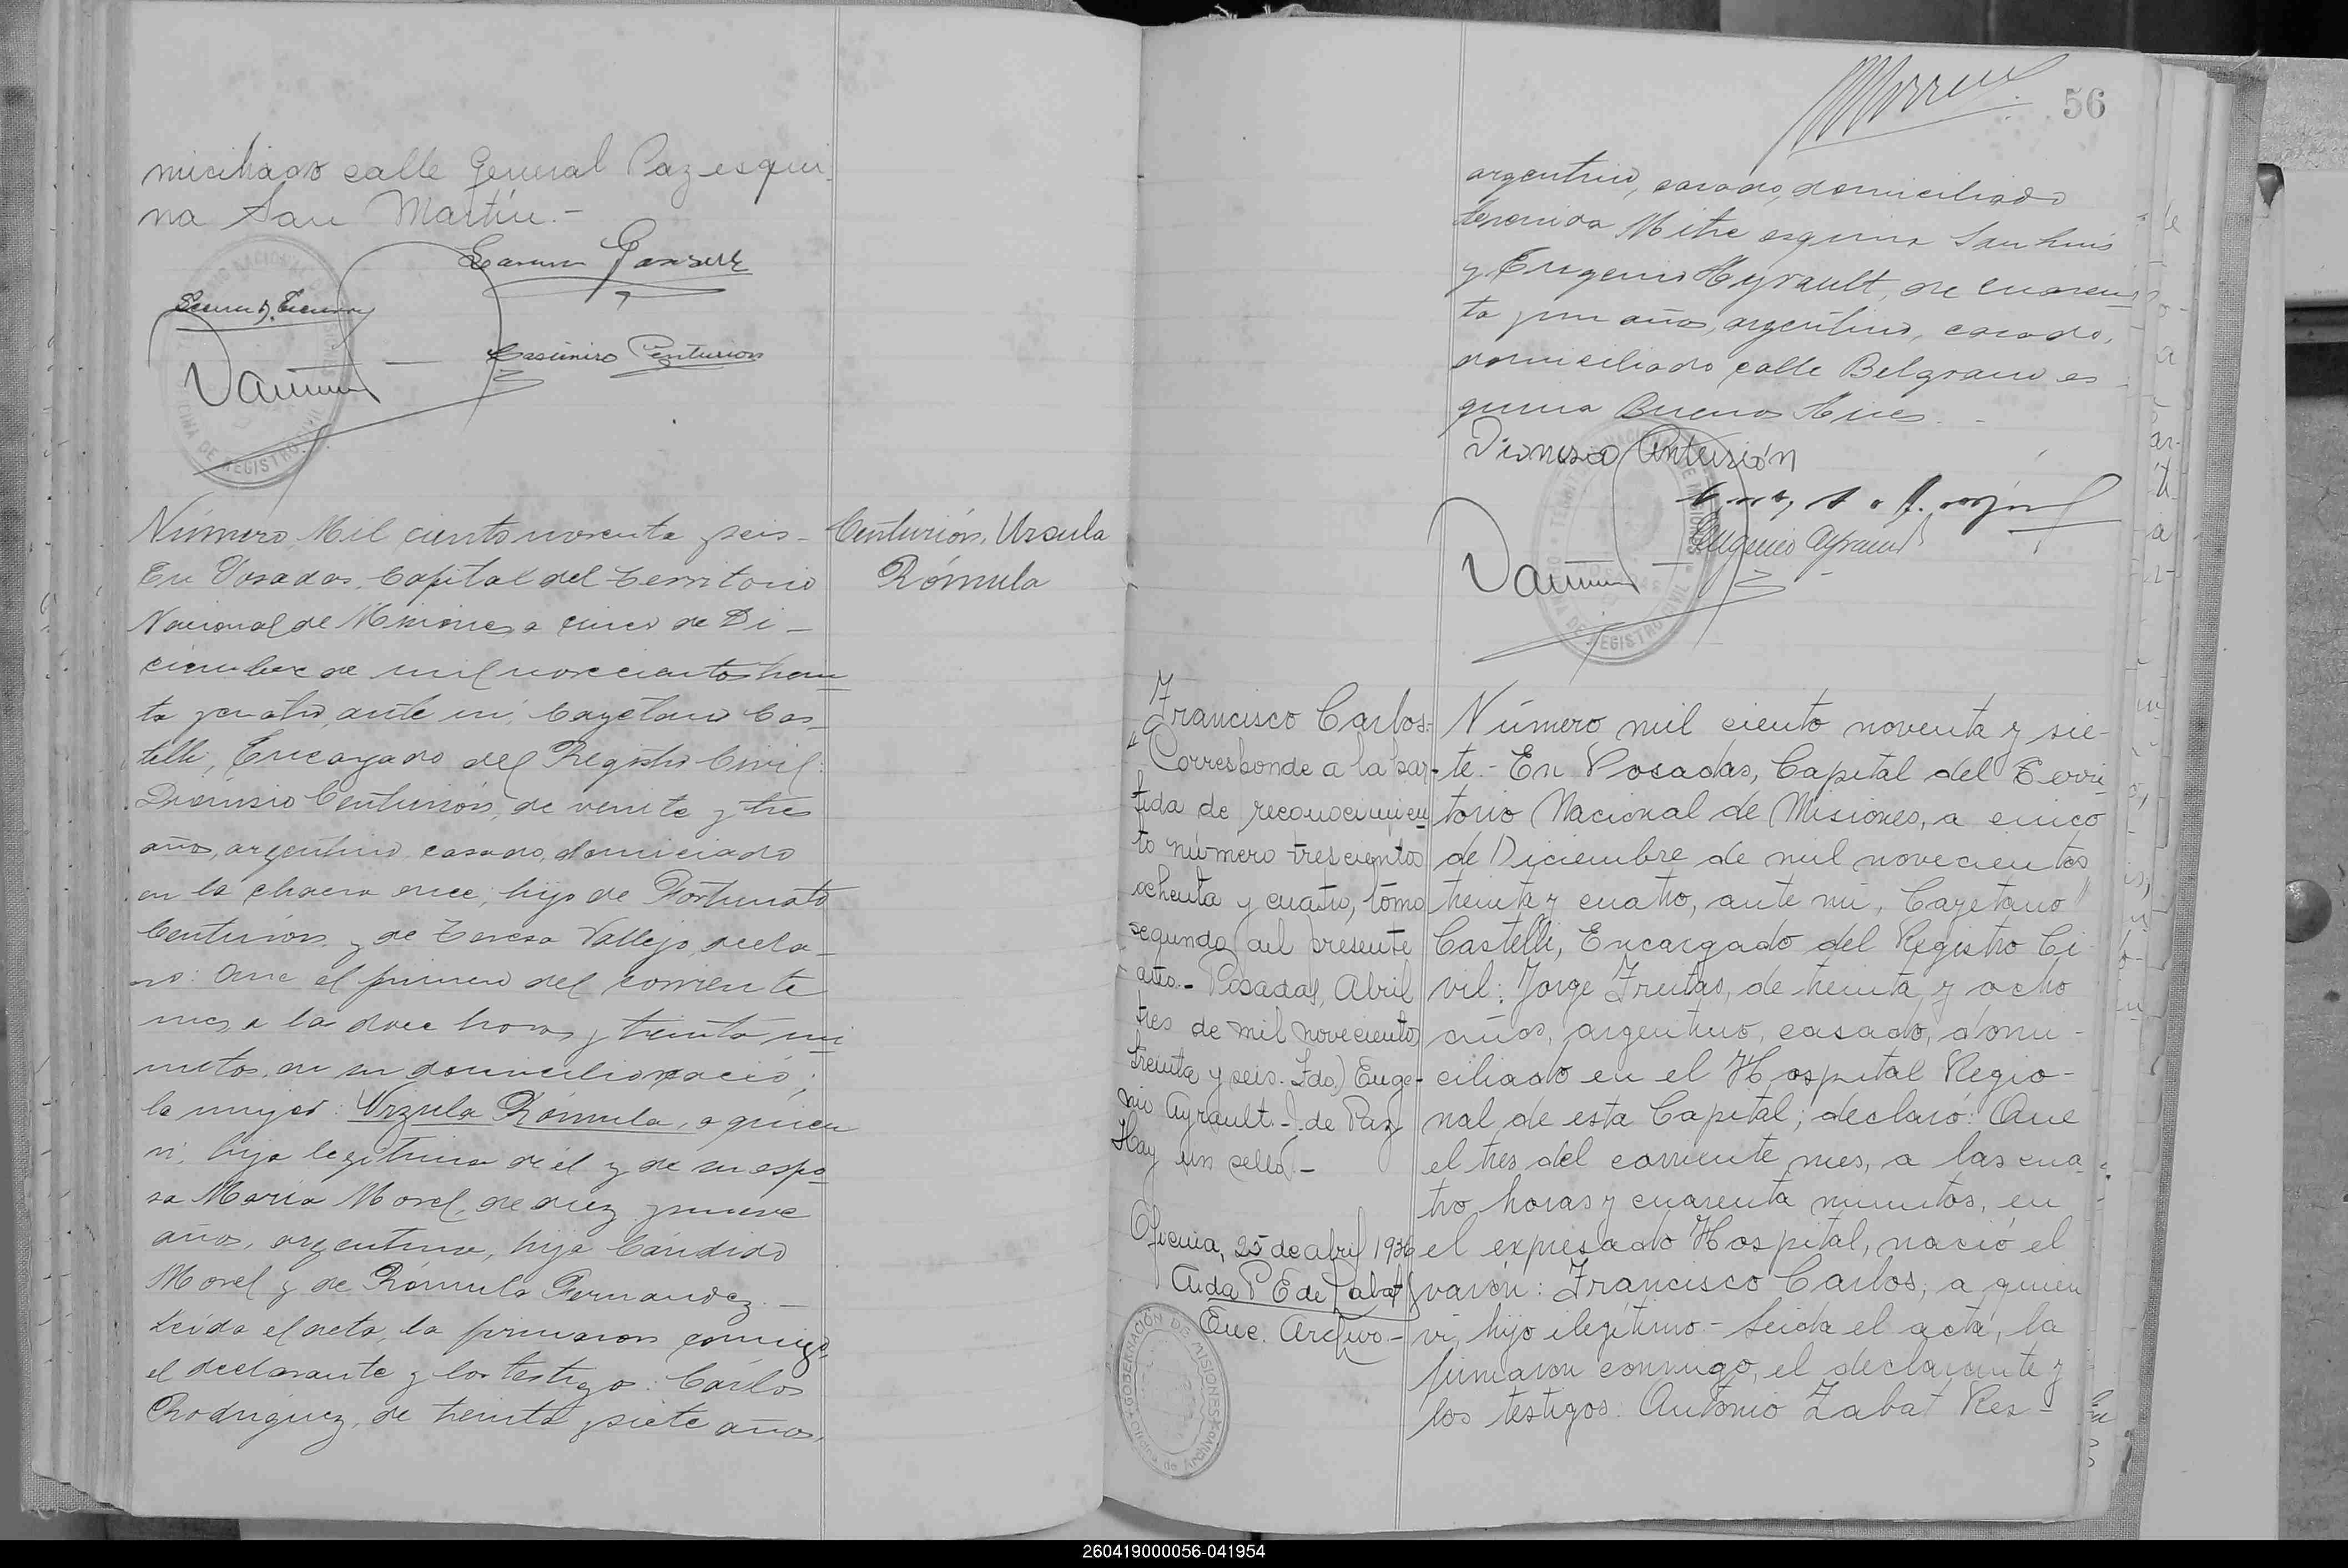 miciliado calle General Paz esqui-
na San Martín.-
Casimiro Centurion
Número Mil ciento noventa y seis -
En Posadas, Capital del Territorio
Nacional de Misiones, a cinco de Di-
ciembre de mil novecientos trein
ta y cuatro, ante mí, Cayetano Cas-
telli, Encargado del Registro Civil:
Dionisio Centurión, de veinte y tres
años, argentino, casado, domiciado
en la chacra once, hijo de Fortunato
Centurión y de Teresa Vallejo, decla-
ró: Que el primero del corriente
mes, a la doce horas y treinta mi
nutos, en su domicilio nació,
la mujer: Urzula Rómula, a quien
vi, hija legítima de él y de su espo
sa María Morel, de diez y nueve
años, argentina, hija Cándido
Morel y de Rómula Fernandez.-
Leída el acta, la firmaron conmigo,
el declarante y los testigos: Carlos
Rodriguez, de treinta y siete años,
Centurión, Ursula
Rómula
56
argentino, casado, domiciliado
Avenida Mitre esquina San Luis
y Eugenio Ayrault, de cuaren
ta y un años, argentino, casado,
domiciliado calle Belgrano es-
quina Buenos Aires.-
Dionisio Centurión
Eugenio Ayrault
Francisco Carlos.-
"Corresponde a la par-
tida de reconocimien
to número trescientos
ochenta y cuatro, tomo
segundo del presente
año.- Posadas, Abril
tres de mil novecientos
treinta y seis. Fdo.) Euge-
nio Ayrault.- J. de Paz
Hay un sello.-
Oficina, 25 de abril 1936
Aida P. E de Zabat
Enc. Archivo -
GOBERNACIÓN DE MISIONES
Oficina de Archivo
Número mil ciento noventa y sie-
te.- En Posadas, Capital del Terri-
torio Nacional de Misiones, a cinco
de Diciembre de mil novecientos
treinta y cuatro, ante mí, Cayetano
Castelli, Encargado del Registro Ci-
vil: Jorge Frutas, de treinta y ocho
años, argentino, casado, domi-
ciliado en el Hospital Regio-
nal de esta Capital; declaró: Que
el tres del corriente mes, a las cua-
tro horas y cuarenta minutos, en
el expresado Hospital, nació el
varón: Francisco Carlos, a quien
vi, hijo ilegítimo.- Leída el acta, la
firmaron conmigo, el declarante y
los testigos: Antonio Zabat Res-
260419000056-041954